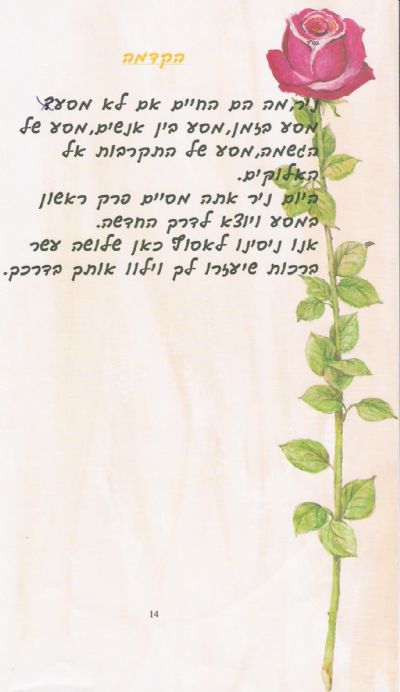 בס"ד
הקדמה
ניר,מה הם החיים אם לא מסע?
מסע בזמן,מסע בין אנשים,מסע של
הגשמה,מסע של התקרבות אל
האלוקים.
היום ניר אתה מסיים פרק ראשון
במסע ויוצא לדרך החדשה.
אנו ניסינו לאסוף כאן שלושה עשר
ברכות שיעזרו לך וילוו אותך בדרכך.
14